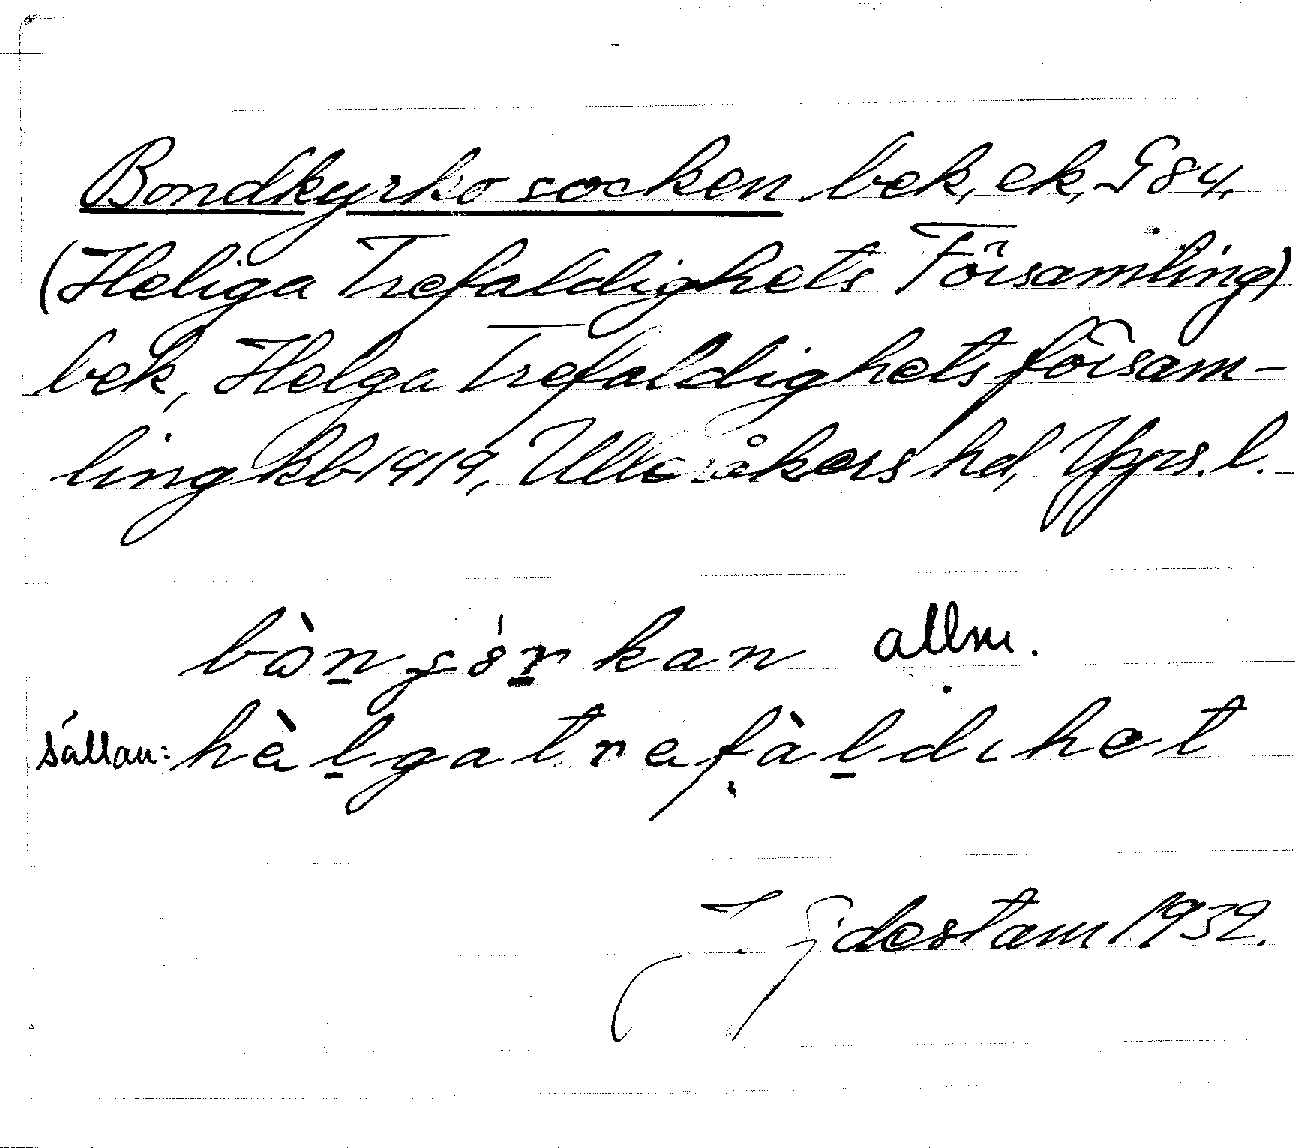 Bondkyrko socken bek, ek, G84.
(Heliga Trefaldighets Församling)
bek, Helga Trefaldighets försam-
ling kb 1919, Ulleråkers hd, Upps. l.
bòṉgo̗ṟkan allm.
sällan: hèḻgatrefàḻdıhet
1932.